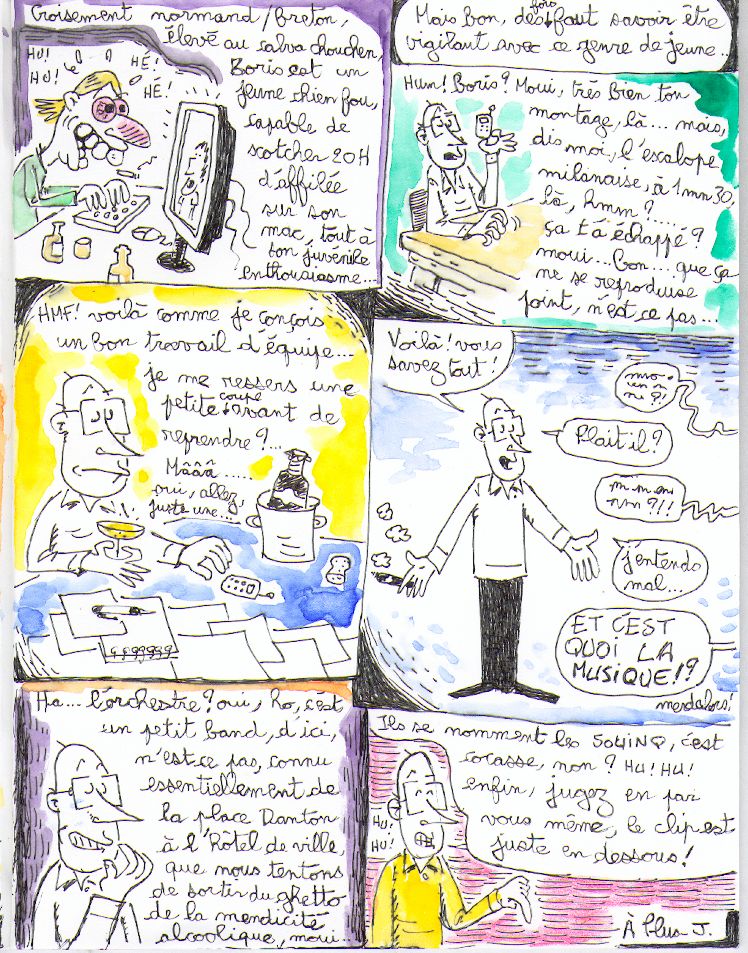 Croisement normand/Breton,
élevé au calva chouchen,
Boris est un
jeune chien fou,
capable de
scotcher 20H
d'affilée
sur son
mac, tout à
ton juvénile
enthousiasme...
HU!
HU!
HÉ!
HÉ!
Mais bon, dès fois faut savoir être
vigilant avec ce genre de jeune...
Hum! Boris? Moui, très bien ton
montage, là... mais,
dis moi, l'escalope
milanaise, à 1mn30,
là, hmm?....
ça t'a échappé?
moui... bon.... que ça
ne se reproduise
point, n'est ce pas...
HMF! voilà comme je conçois
un bon travail d'équipe...
je me ressers une
petite coupe avant de
reprendre?...
Mâââ......
oui, allez,
juste une...
Voilà! vous
savez tout!
Plait il?
j'entends
mal...
ET C'EST
QUOI LA
MUSIQUE!?
merdalors!
Ha... l'orchestre? oui, ho, c'est
un petit band, d'ici,
n'est ce pas, connu
essentiellement de
la place Danton
à l'Hôtel de ville
que nous tentons
de sortir du ghetto
de la mendicité
alcoolique, moui...
Ils se nomment les SOWINQ, c'est
cocasse, non? HU! HU!
enfin, jugez en par
vous même, le clip est
juste en dessous!
HU!
HU!
À Plus J.